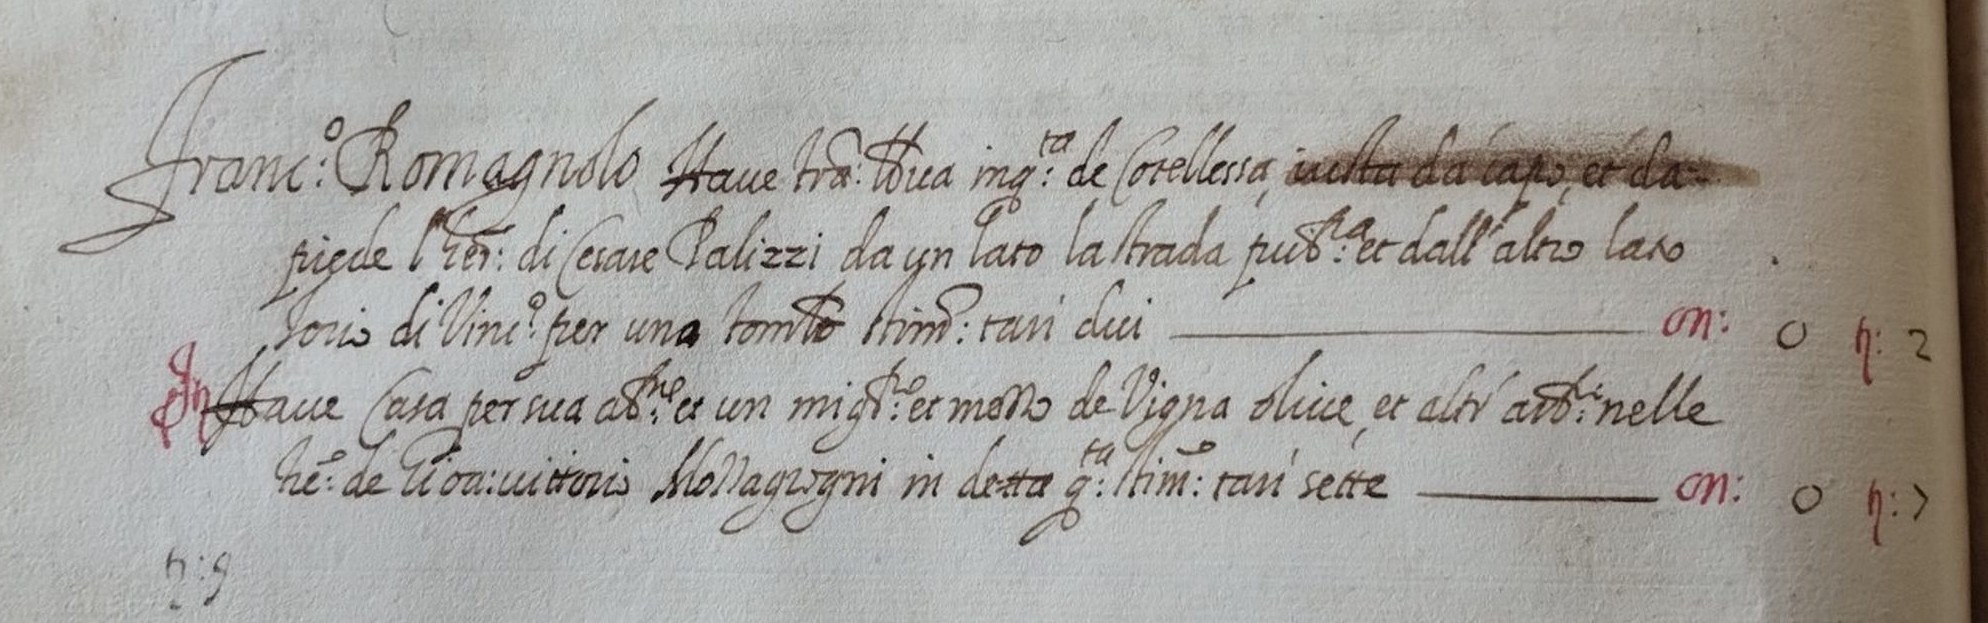 Franc:o Romagnolo Haue trã: in q:ta de Corellessa, iusta da capo, et da-
piede l'her: di Cesare Palizzi da un lato la strada pub:ca et dall'altro lato
Iorio di Vinc:o per una stim: tari dui on: 0 t: 2
In Haue Casa per sua ab:ne et un migl:ro et mezzo de Vigna oliue, et altri arb:ri nelle
he: de Gioa:uittorio in detta q:ta stim: tari sette on: 0 t: 7
t: 9